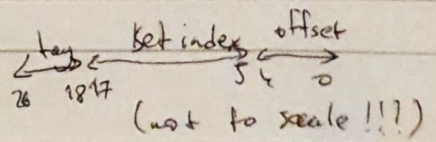 tag set index offset
26 18 17 5 4 0
(not to scale!!!)